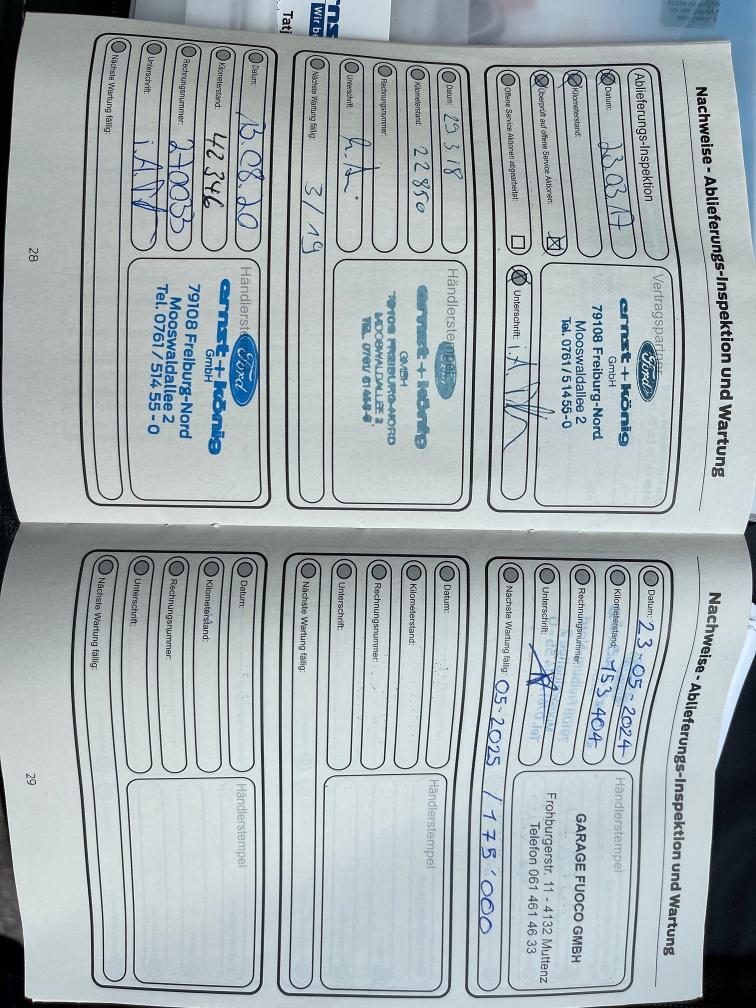 Nachweise - Ablieferungs-Inspektion und Wartung
Ablieferungs-Inspektion
Datum: 23.03.17
Kilometerstand:
Überprüft auf offene Service Aktionen:
Offene Service Aktionen abgearbeitet:
Vertragspartner
Ford
ernst + könig
GmbH
79108 Freiburg-Nord
Mooswaldallee 2
Tel. 0761 / 5 14 55-0
Unterschrift:
Datum: 29.3.18
Kilometerstand: 22850
Rechnungsnummer:
Unterschrift:
Nächste Wartung fällig: 3/19
Händlerstempel
Ford
ernst + könig
GMBH
79108 FREIBURG-NORD
MOOSWALDALLEE 2
Datum: 13.08.20
Kilometerstand: 42346
Rechnungsnummer:
Unterschrift:
Nächste Wartung fällig:
Ford
ernst + könig
GmbH
79108 Freiburg-Nord
Mooswaldallee 2
Tel. 0761 / 514 55 - 0
28
Nachweise - Ablieferungs-Inspektion und Wartung
Datum: 23-05-2024
Kilometerstand: 153404
Rechnungsnummer:
Unterschrift:
Nächste Wartung fällig: 05-2025 / 175'000
Händlerstempel
GARAGE FUOCO GMBH
Frohburgerstr. 11 - 4132 Muttenz
Telefon 061 461 46 33
Datum:
Kilometerstand:
Rechnungsnummer:
Unterschrift:
Nächste Wartung fällig:
Händlerstempel
Datum:
Kilometerstand:
Rechnungsnummer:
Unterschrift:
Nächste Wartung fällig:
Händlerstempel
29